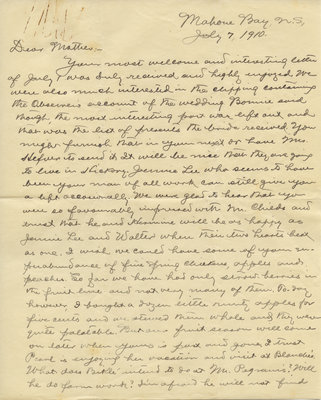 Mahone Bay, N.S,
July 7, 1910.
Dear Mother,
Your most welcome and interesting letter
of July 1 was duly received and highly enjoyed. We
were also much interested in the clipping containing
the Observer's account of the wedding. Bonnie said
though, the most interesting part was left out and
that was the list of presents the bride received. You
might furnish that in your next or have Mrs.
to send it. It will be nice that they are going
to live in Hickory. Jennie Lee who seems to have
been your man of all work can still give you
a lift occasionally. We were glad to hear that you
were so favourably impressed with Mr. Childs and
trust that he and Minnie will be as happy as
Jennie Lee and Walter when their two hearts beat
as one. I wish we could have some of your
abundance of fine spring chickens apples and
peaches. So far we have had only straw berries in
the fruit line and not very many of them. To-day
however I bought a dozen little rusty apples for
five cents and we stewed them whole and they were
quite palatable. But our fruit season will come
on later when yours is past and gone. I trust
Pearl is enjoying her vacation and visit at Blanche's.
What does intend to do at Mr. Pegram's? Will
he do farm work? I'm afraid he will not find